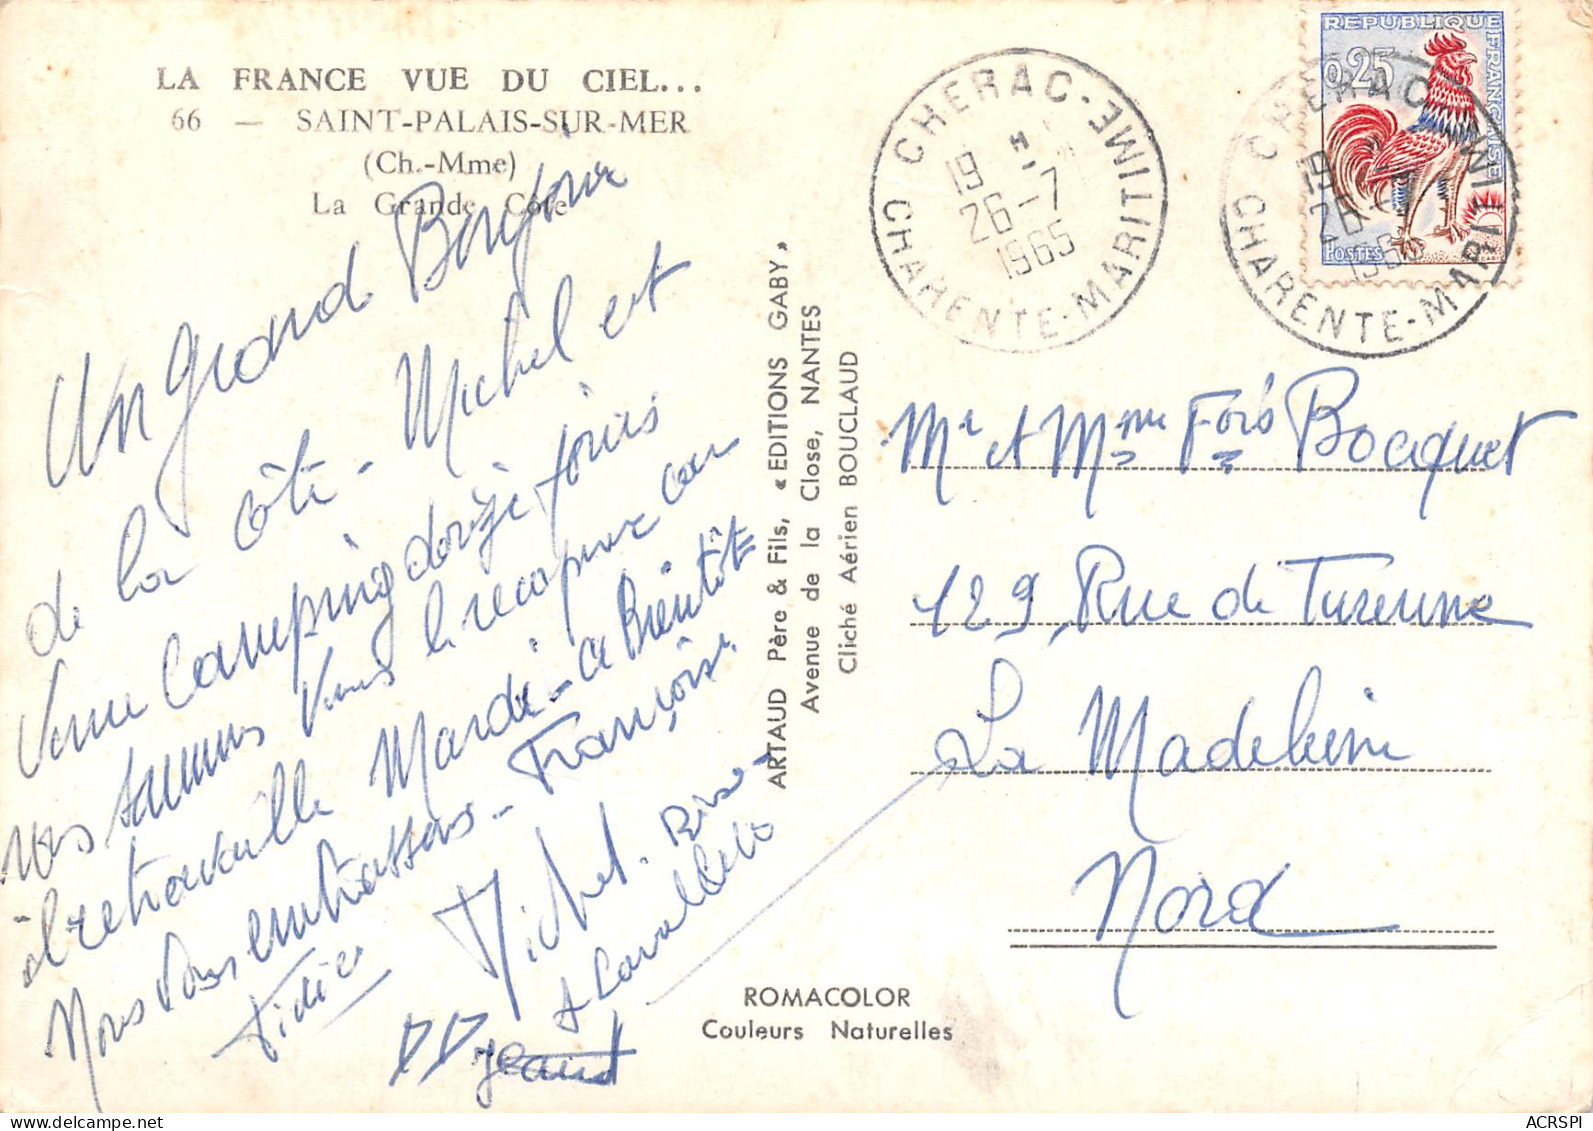 LA FRANCE VUE DU CIEL...
66 — SAINT-PALAIS-SUR-MER
(Ch.-Mme)
La Grande Côte
Un grand Bonjour
de la côte - Michel et
Camping
nous sommes
il retravaille Mardi - a Bientôt
Nous Vous embrassons - Françoise
Michel.
Didier
ARTAUD Père & Fils, « EDITIONS GABY »
Avenue de la Close, NANTES
Cliché Aérien BOUCLAUD
CHERAC - CHARENTE-MARITIME
19 H
26-7
1965
REPUBLIQUE FRANÇAISE
0,25
POSTES
CHERAC - CHARENTE-MARITIME
19 H
26-7
1965
Mr et Mme Fois Bocquet
129, Rue de Turenne
La Madeleine
Nord
ROMACOLOR
Couleurs Naturelles
ACRSPI